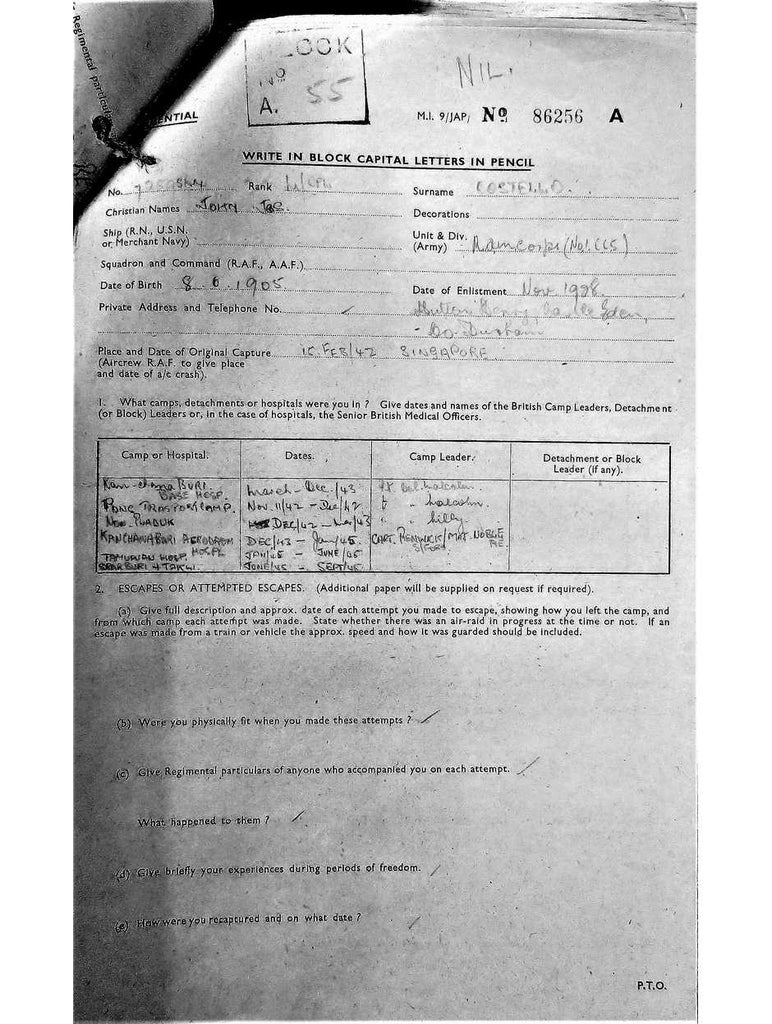 Regimental particula
LOCK
Nº
A. 55
NIL.
ENTIAL
M.I. 9/JAP/ Nº 86256 A
WRITE IN BLOCK CAPITAL LETTERS IN PENCIL
No. Rank L/CPL Surname COSTELLO
Christian Names JOHN Decorations
Ship (R.N., U.S.N. or Merchant Navy)
Unit & Div. (Army) (No1 CCS)
Squadron and Command (R.A.F., A.A.F.)
Date of Birth 8.6.1905 Date of Enlistment Nov 1928
Private Address and Telephone No. Hutton Henry, Castle Eden,
- Co. Durham
Place and Date of Original Capture 15 FEB/42 SINGAPORE
(Aircrew R.A.F. to give place
and date of a/c crash).
1. What camps, detachments or hospitals were you in ? Give dates and names of the British Camp Leaders, Detachment
(or Block) Leaders or, in the case of hospitals, the Senior British Medical Officers.
Camp or Hospital. Dates. Camp Leader. Detachment or Block
Leader (if any).
BURI BASE HOSP. March - Dec./43 Lt Col. Malcolm
CAMP. Nov. 11/42 - Dec/42 " " Malcolm.
NON PLADUK DEC/42 - Mar/43 " " Lilly
KANCHANABURI AERODROM HOSPL DEC/43 - Jan/45. CAPT. / MAJ. NOBLE R.E.
TAMUWAN HOSP. JAN/45 - JUNE/45
& TAKLI. JUNE/45 - SEPT/45
2. ESCAPES OR ATTEMPTED ESCAPES. (Additional paper will be supplied on request if required).
(a) Give full description and approx. date of each attempt you made to escape, showing how you left the camp, and
from which camp each attempt was made. State whether there was an air-raid in progress at the time or not. If an
escape was made from a train or vehicle the approx. speed and how it was guarded should be included.
(b) Were you physically fit when you made these attempts ?
(c) Give Regimental particulars of anyone who accompanied you on each attempt.
What happened to them ?
(d) Give briefly your experiences during periods of freedom.
(e) How were you recaptured and on what date ?
P.T.O.